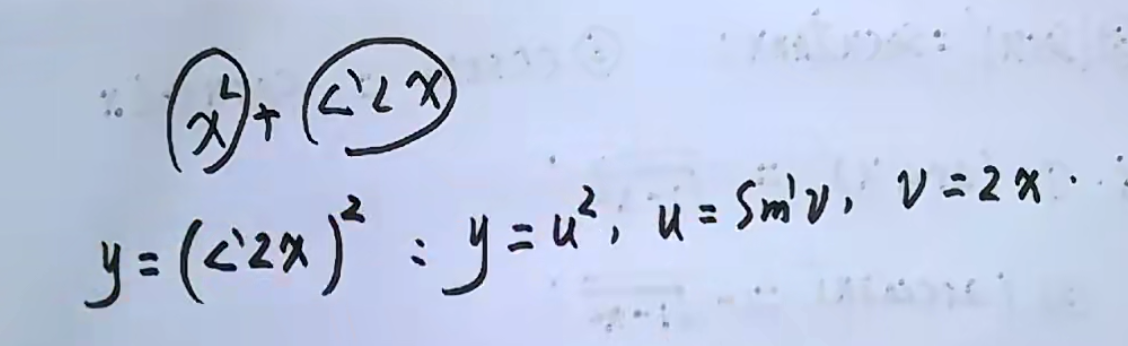 x² + <'2x
y = (<'2x)² : y = u², u = Sm'v, v = 2x.